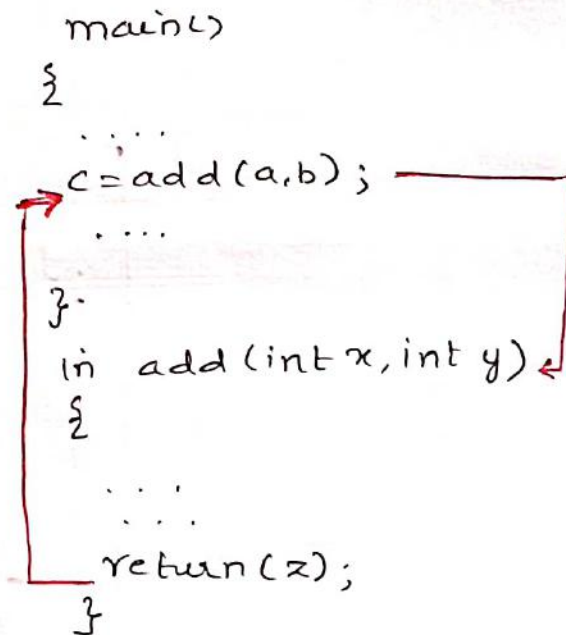 main()
{
....
c=add(a,b);
....
}.
in add(int x, int y)
{
....
....
return(z);
}